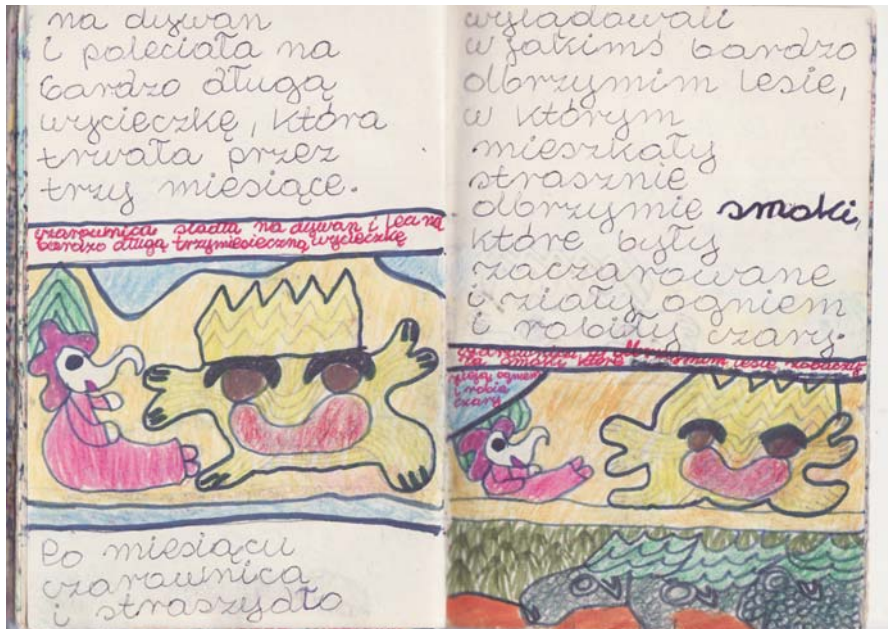 na dywan
i poleciała na
bardzo długą
wycieczkę, która
trwała przez
trzy miesiące.
czarownica siadła na dywan i leci na
bardzo długą trzymiesieczną wycieczkę
Po miesiącu
czarownica
i straszydło
wylądowali
w jakimś bardzo
olbrzymim lesie,
w którym
mieszkały
strasznie
olbrzymie smoki,
które były
zaczarowane
i ziały ogniem
i robiły czary.
lesie zobaczyły
smoki które
zieją ogniem
i robią
czary